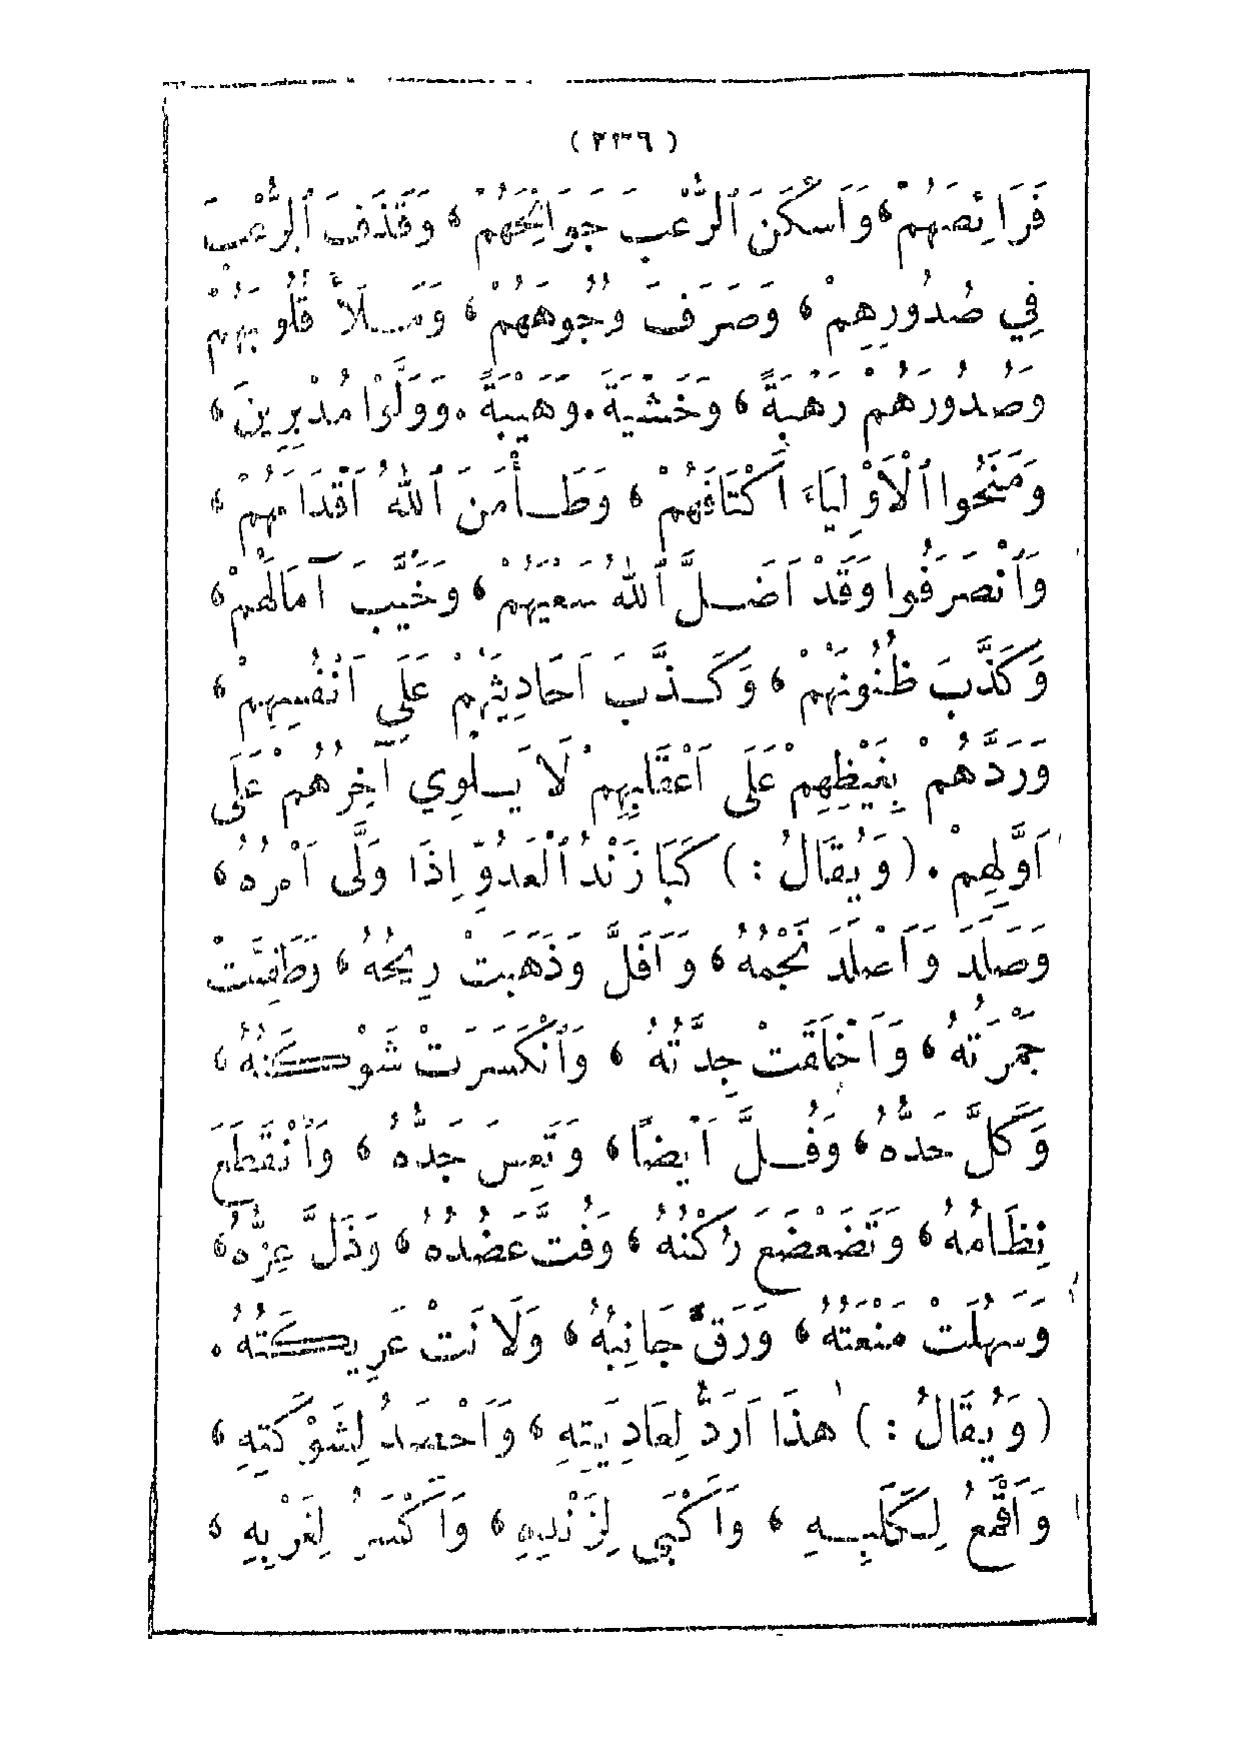 (٢٣٦)
فَرَائِصَهُمْ، وَأَسْكَنَ ٱلرُّعْبَ جَوَانِحَهُمْ، وَقَذَفَ ٱلرُّعْبَ
فِي صُدُورِهِمْ، وَصَرَفَ وُجُوهَهُمْ، وَمَـلَأَ قُلُوبَهُمْ
وَصُدُورَهُمْ رَهْبَةً، وَخَشْيَةً. وَهَيْبَةً. وَوَلَّوْا مُدْبِرِينَ،
وَمَنَحُوا ٱلْأَوْلِيَاءَ أَكْتَافَهُمْ، وَطَـأْمَنَ ٱللهُ أَقْدَامَهُمْ،
وَٱنْصَرَفُوا وَقَدْ أَضَـلَّ ٱللهُ سَعْيَهُمْ، وَخَيَّبَ آمَالَهُمْ،
وَكَذَّبَ ظُنُونَهُمْ، وَكَـذَّبَ أَحَادِيثَهُمْ عَلَى أَنْفُسِهِمْ،
وَرَدَّهُمْ بِغَيْظِهِمْ عَلَى أَعْقَابِهِمْ لَا يَـلْوِي آخِرُهُمْ عَلَى
أَوَّلِهِمْ. (وَيُقَالُ:) كَبَا زَنْدُ ٱلْعَدُوِّ إِذَا وَلَّى أَمْرُهُ،
وَصَلَدَ وَأَصْلَدَ نَجْمُهُ، وَأَفَلَ وَذَهَبَتْ رِيحُهُ، وَطَفِئَتْ
جَمْرَتُهُ، وَأَخْلَقَتْ جِدَّتُهُ، وَٱنْكَسَرَتْ شَوْكَتُهُ،
وَكَلَّ حَدُّهُ، وَفُـلَّ أَيْضًا، وَتَعِسَ جَدُّهُ، وَٱنْقَطَعَ
نِظَامُهُ، وَتَضَعْضَعَ رُكْنُهُ، وَفُتَّ عَضُدُهُ، وَذَلَّ عِزُّهُ،
وَسَهُلَتْ مَنْعَتُهُ، وَرَقَّ جَانِبُهُ، وَلَانَتْ عَرِيكَتُهُ.
(وَيُقَالُ:) هٰذَا أَرَدُّ لِعَادِيَتِهِ، وَأَحْصَدُ لِشَوْكَتِهِ،
وَأَقْمَعُ لِكَلَبِـهِ، وَأَكْبَى لِزَنْدِهِ، وَأَكْسَرُ لِغَرْبِهِ،